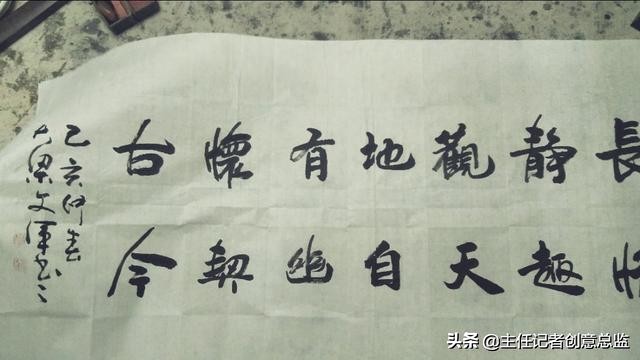 長將
靜趣
觀天
地自
有幽
懷契
古今
己亥仲春
大梁文軍書
头条 @主任记者创意总监